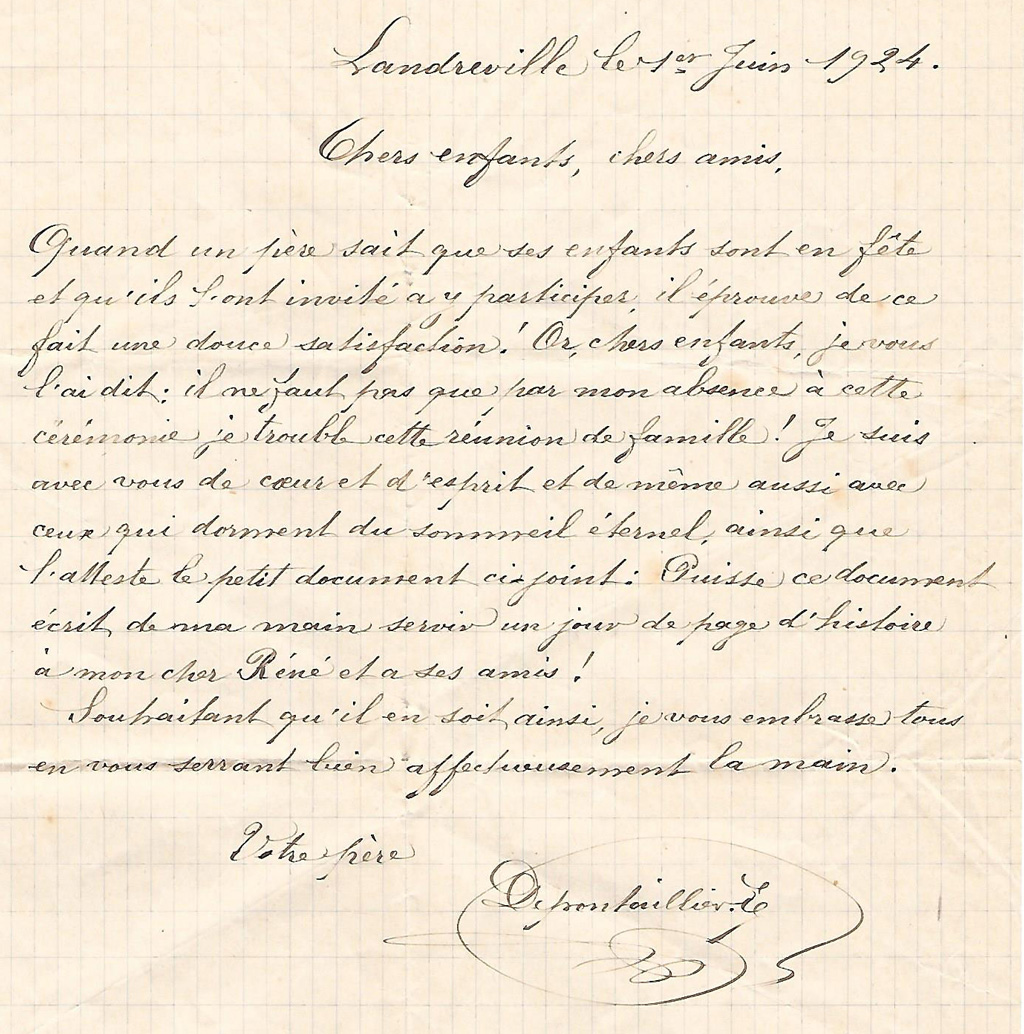 Landreville le 1er Juin 1924.
Chers enfants, chers amis,
Quand un père sait que ses enfants sont en fête
et qu'ils l'ont invité a y participer, il éprouve de ce
fait une douce satisfaction! Or, chers enfants, je vous
l'ai dit: il ne faut pas que par mon absence à cette
cérémonie je trouble cette réunion de famille! Je suis
avec vous de cœur et d'esprit et de même aussi avec
ceux qui dorment du sommeil éternel, ainsi que
l'atteste le petit document ci-joint: Puisse ce document
écrit de ma main servir un jour de page d'histoire
à mon cher Réné et a ses amis!
Souhaitant qu'il en soit ainsi, je vous embrasse tous
en vous serrant bien affectueusement la main.
Votre père
Depontaillier